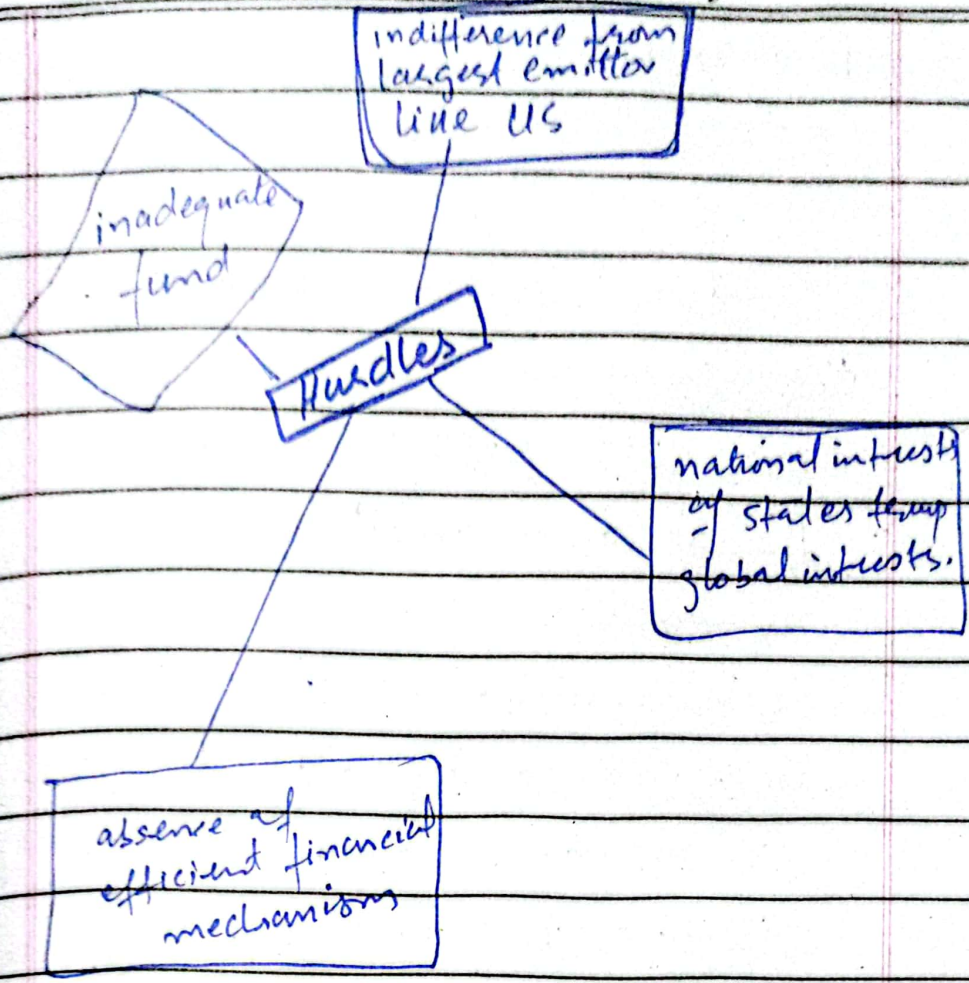 indifference from
largest emittor
like US
inadequate
fund
Hurdles
national intrests
of states trump
global intrests.
absence of
efficient financial
mechanisms